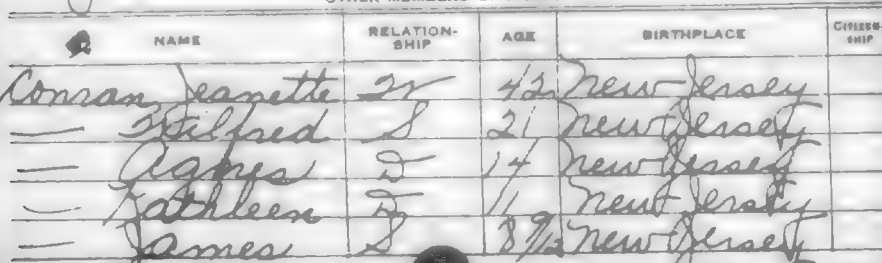 OTHER MEMBERS
NAME RELATION-SHIP AGE BIRTHPLACE CITIZEN-SHIP
Conran, Jeanette W 42 New Jersey
— Wilfred S 21 New Jersey
— Agnes D 14 New Jersey
— Kathleen D 11 New Jersey
— James S 8 9/12 New Jersey